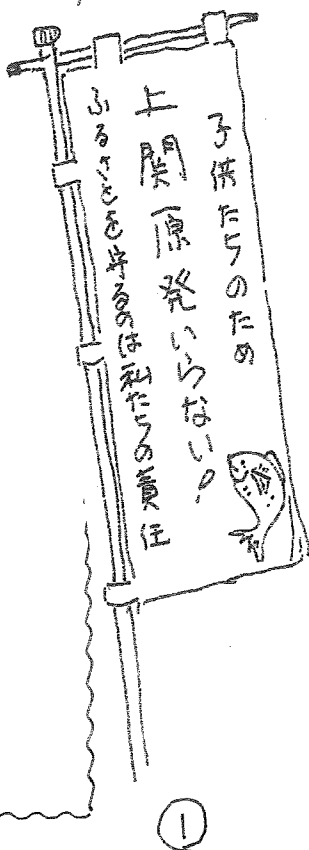 子供たちのため
上関原発いらない!
ふるさとを守るのは私たちの責任
①